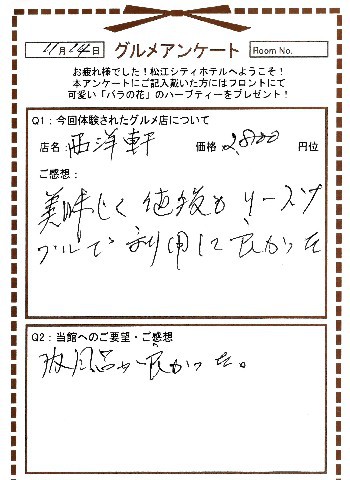 11月24日 グルメアンケート Room No.
お疲れ様でした！松江シティホテルへようこそ！
本アンケートにご記入戴いた方にはフロントにて
可愛い「バラの花」のハーブティーをプレゼント！
Q1：今回体験されたグルメ店について
店名：西洋軒 価格 2,800 円位
ご感想：
美味しく 値段もリーズナ
ブルで利用して良かった
Q2：当館へのご要望・ご感想
お風呂が良かった。